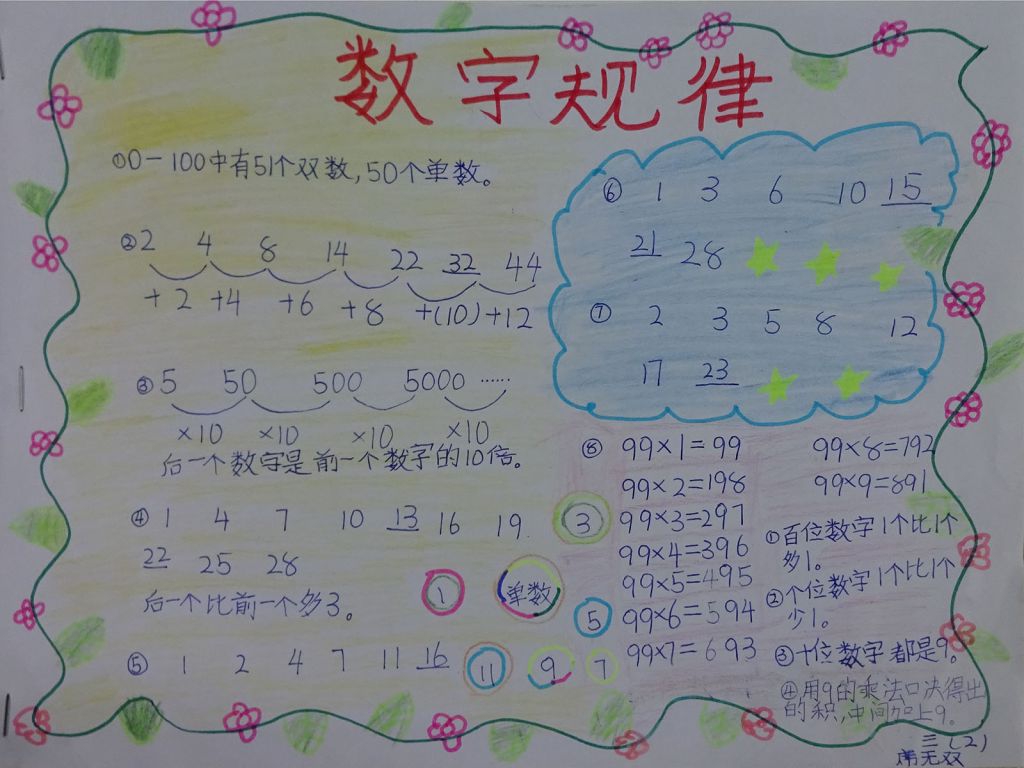 数字规律
①0-100中有51个双数，50个单数。
②2 4 8 14 22 32 44
+2 +4 +6 +8 +(10) +12
③5 50 500 5000 ……
×10 ×10 ×10 ×10
后一个数字是前一个数字的10倍。
④1 4 7 10 13 16 19
22 25 28
后一个比前一个多3。
⑤ 1 2 4 7 11 16
⑥ 1 3 6 10 15
21 28
⑦ 2 3 5 8 12
17 23
③
①
单数
⑤
⑪
9
7
⑥ 99×1=99
99×2=198
99×3=297
99×4=396
99×5=495
99×6=594
99×7=693
99×8=792
99×9=891
①百位数字1个比1个
多1。
②个位数字1个比1个
少1。
③十位数字都是9。
④用9的乘法口决得出
的积，中间加上9。
三(2)
无双